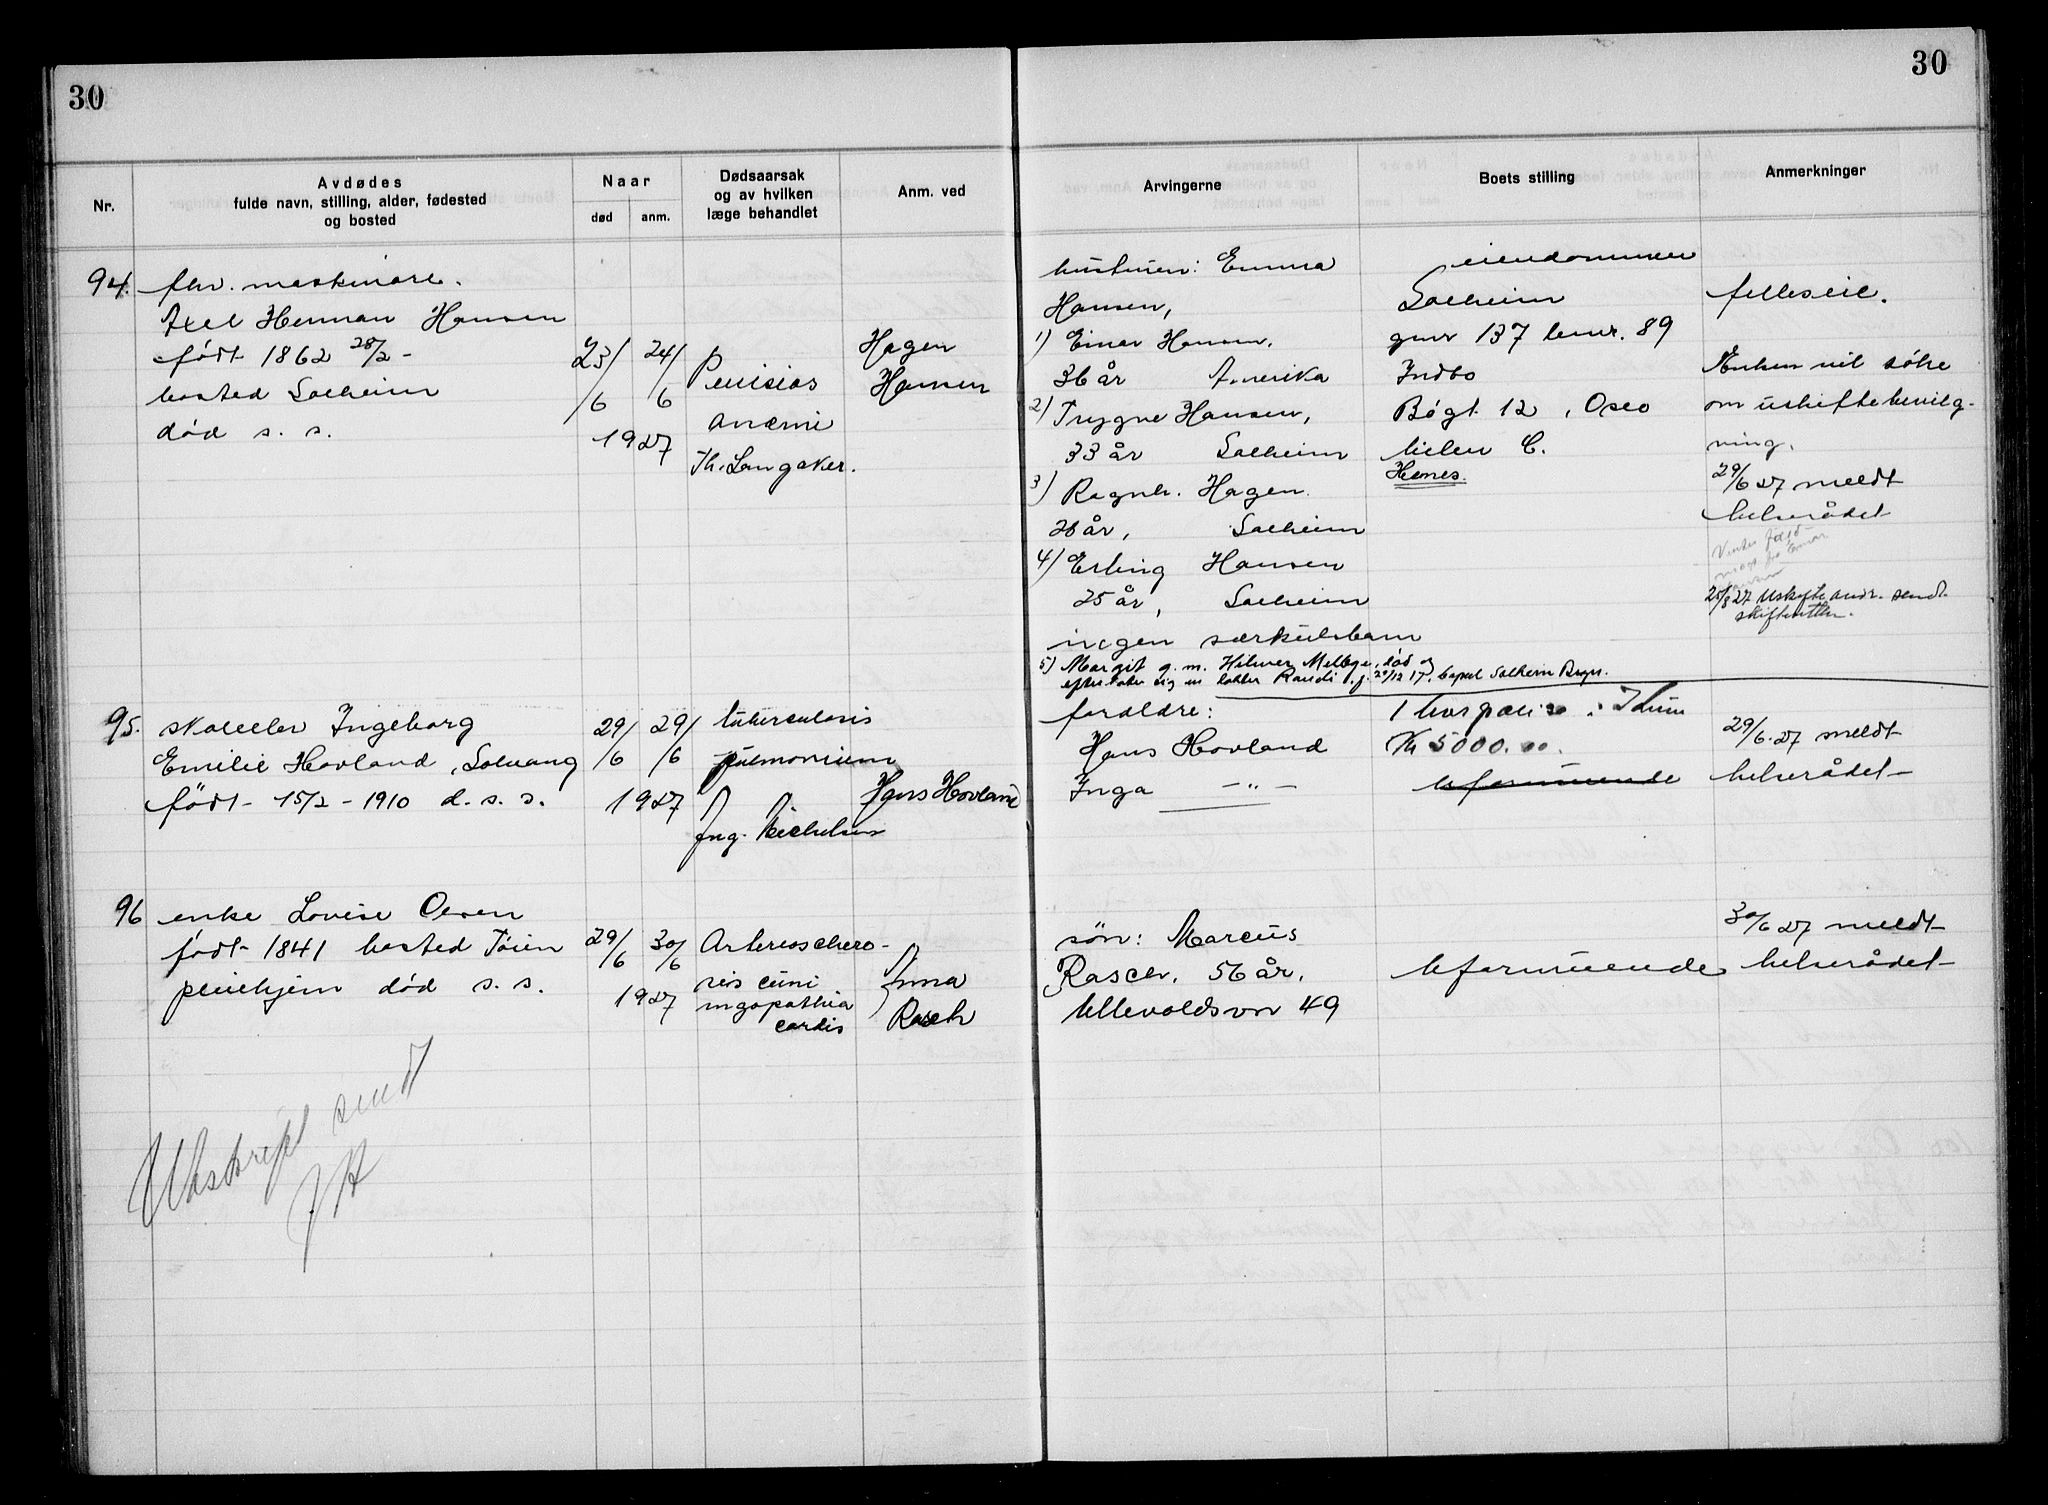 30
30
Nr.
Avdødes
fulde navn, stilling, alder, fødested
og bosted
Naar
død
anm.
Dødsaarsak
og av hvilken
læge behandlet
Anm. ved
Arvingerne
Boets stilling
Anmerkninger
94.
fhv. maskinare.
Axel Herman Hansen
født 1862 28/2 -
bosted Solheim
død s. s.
23/6
24/6
1927
Pernisiøs
anæmi
Th. Langaker.
Hagen
Hansen
hustruen: Emma
Hansen,
1) Einar Hansen,
36 år Amerika
2) Trygve Hansen,
33 år Solheim
3) Ragnh. Hagen.
28 år, Solheim
4) Erling Hansen
25 år, Solheim
ingen særkulsbarn
5) Margit g. m. Hilmer død og
efterlater sig en datter Randi f. 20/12 17. bopæl Solheim Bryn.
eiendommen
Solheim
gnr 137 bnr. 89
Indbo
Bøgt. 12, Oslo
bilen C.
felleseie.
Enken vil søke
om uskiftebevilg-
ning.
29/6 27 meldt
helserådet
Venter
fra Einar
Hansen
25/8 27 Uskifteandr. sendt
skifteretten.
95.
skoleelev Ingeborg
Emilie Hovland, Solvang
født 15/2 - 1910 d. s. s.
29/6
29/6
1927
tuberculosis
pulmonium
Ing. Michelsen
Hans Hovland
foreldre:
Hans Hovland
Inga — " —
1 livspolise i Idun
Kr 5000.00.
Uformuende
29/6. 27 meldt
helserådet
96
enke Lovise Olsen
født 1841 bosted Tøien
pleiehjem død s. s.
29/6
30/6
1927
Arterioschero-
sis cum
myopathia
cordis
Anna
Rasch
søn: Marcus
56 år,
Ullevoldsvn 49
Uformuende
30/6 27 meldt
helserådet
Utskrift sendt